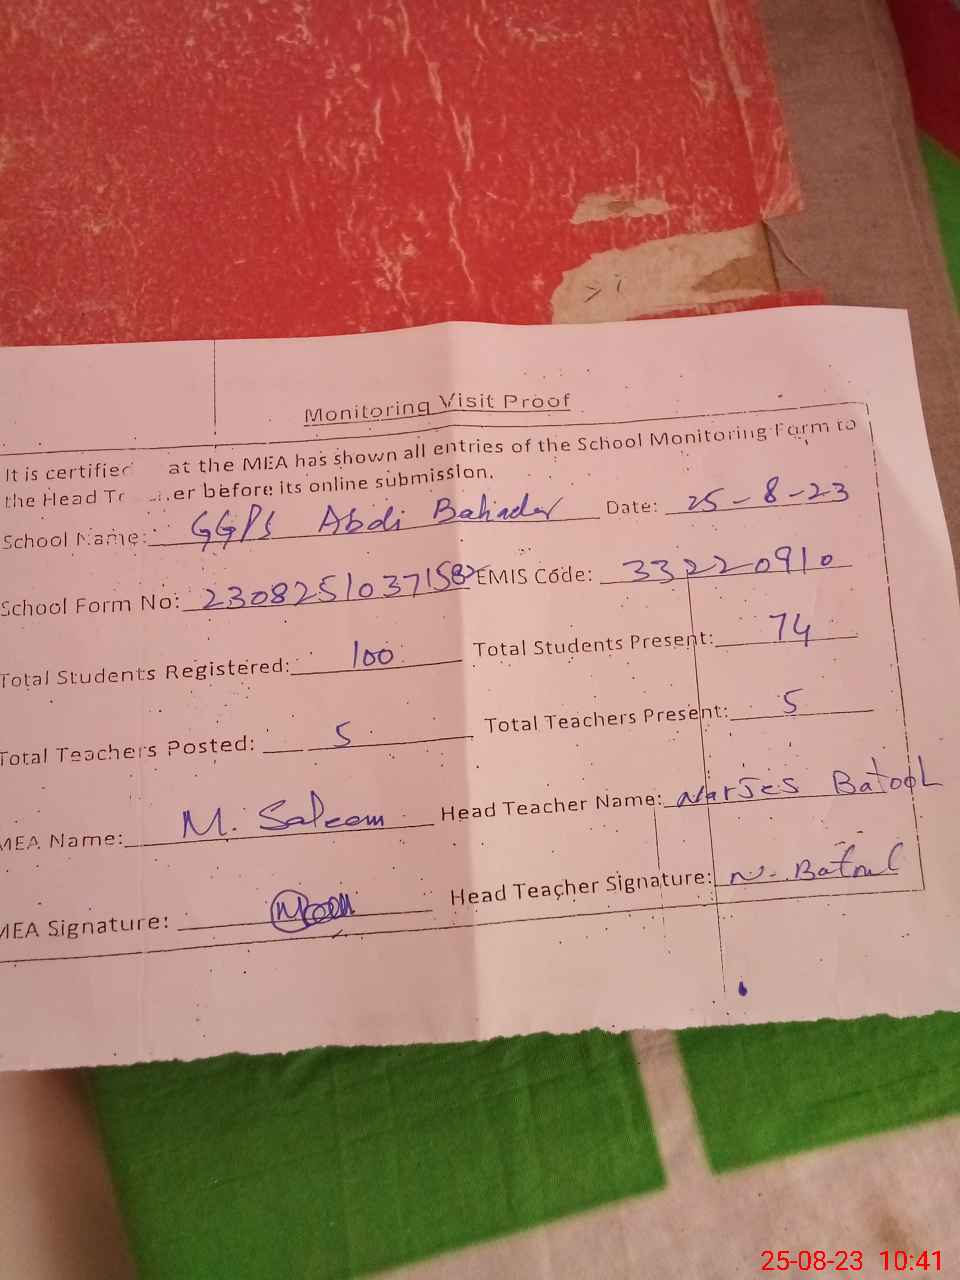 Monitoring Visit Proof
It is certified at the MEA has shown all entries of the School Monitoring Form to
the Head Te er before its online submission.
School Name: GGPS Abdi Bahadar Date: 25-8-23
School Form No: 23082510371582 EMIS Code: 33220910
Total Students Registered: 100 Total Students Present: 74
Total Teachers Posted: 5 Total Teachers Present: 5
MEA Name: M. Saleem Head Teacher Name: Narjes Batool
MEA Signature: Head Teacher Signature: N. Batool
25-08-23 10:41